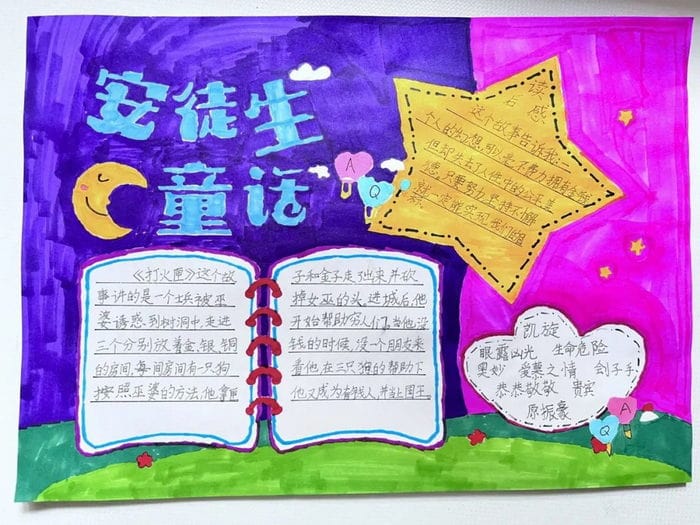 安徒生
童话
读
后感
这个故事告诉我:
《打火匣》这个故
事讲的是一个士兵被巫
婆诱惑到树洞中,走进
三个分别放着金、银、铜
的房间,每间房间有一只狗
按照巫婆的方法,他拿
子和金子走了出来,并砍
掉女巫的头,进城后,他
开始帮助穷人们,当他没
钱的时候,没一个朋友来
看他,在三只狗的帮助下
他又成为有钱人,并当上国王。
凯旋
眼露凶光 生命危险
奥妙 爱慕之情 刽子手
恭恭敬敬 贵宾
A
Q
A
Q